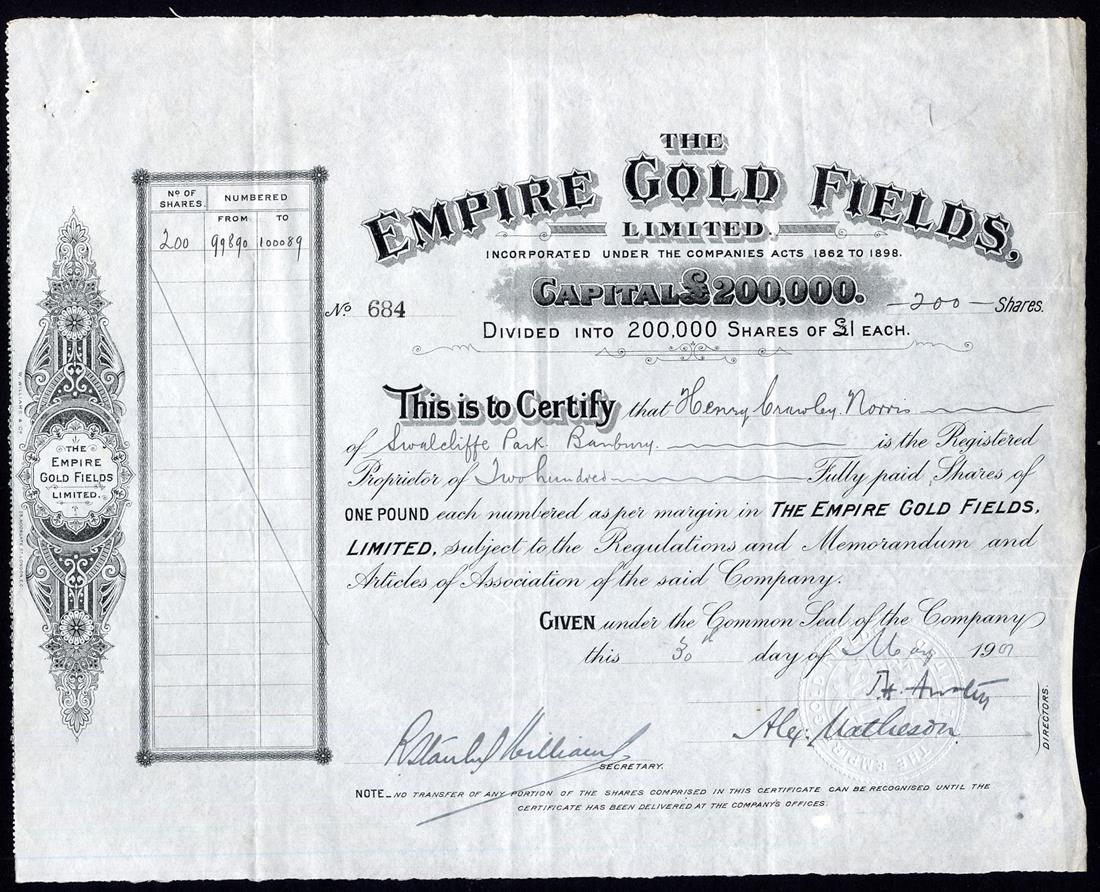 THE
EMPIRE GOLD FIELDS,
LIMITED.
INCORPORATED UNDER THE COMPANIES ACTS 1862 TO 1898.
CAPITAL £200,000.
Nº 684
—200— Shares.
DIVIDED INTO 200,000 SHARES OF £1 EACH.
Nº OF SHARES. NUMBERED
FROM TO
200 99890 100089
THE
EMPIRE
GOLD FIELDS
LIMITED.
This is to Certify that Henry Crawley Norris
of Swalcliffe Park Banbury. is the Registered
Proprietor of Two hundred Fully paid Shares of
ONE POUND each numbered as per margin in THE EMPIRE GOLD FIELDS,
LIMITED, subject to the Regulations and Memorandum and
Articles of Association of the said Company.
GIVEN under the Common Seal of the Company
this 30th day of May 190
Alex. Matheson
DIRECTORS.
R Stanley Williams
SECRETARY.
NOTE_NO TRANSFER OF ANY PORTION OF THE SHARES COMPRISED IN THIS CERTIFICATE CAN BE RECOGNISED UNTIL THE
CERTIFICATE HAS BEEN DELIVERED AT THE COMPANY'S OFFICES.